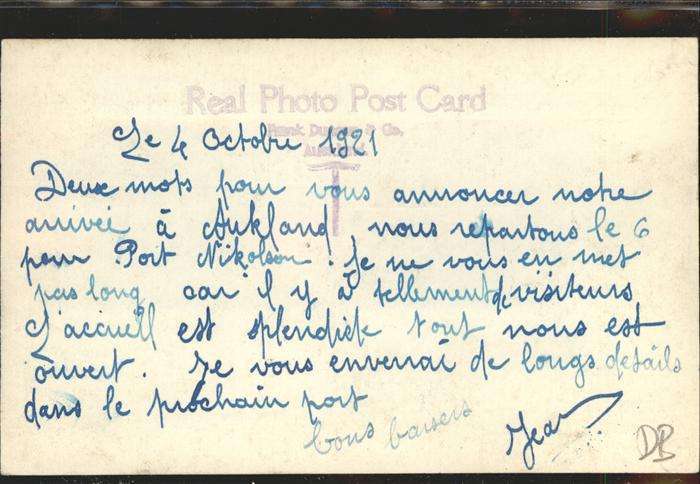 Real Photo Post Card
Frank Du & Co,
Le 4 Octobre 1921
Deux mots pour vous annoncer notre
arrivée à Aukland, nous repartons le 6
pour Port Nikolson. Je ne vous en met
pas long car il y à tellement de visiteurs
L'accueil est splendide tout nous est
ouvert. Je vous enverrai de longs détails
dans le prochain port
bons baisers
Jean
DB